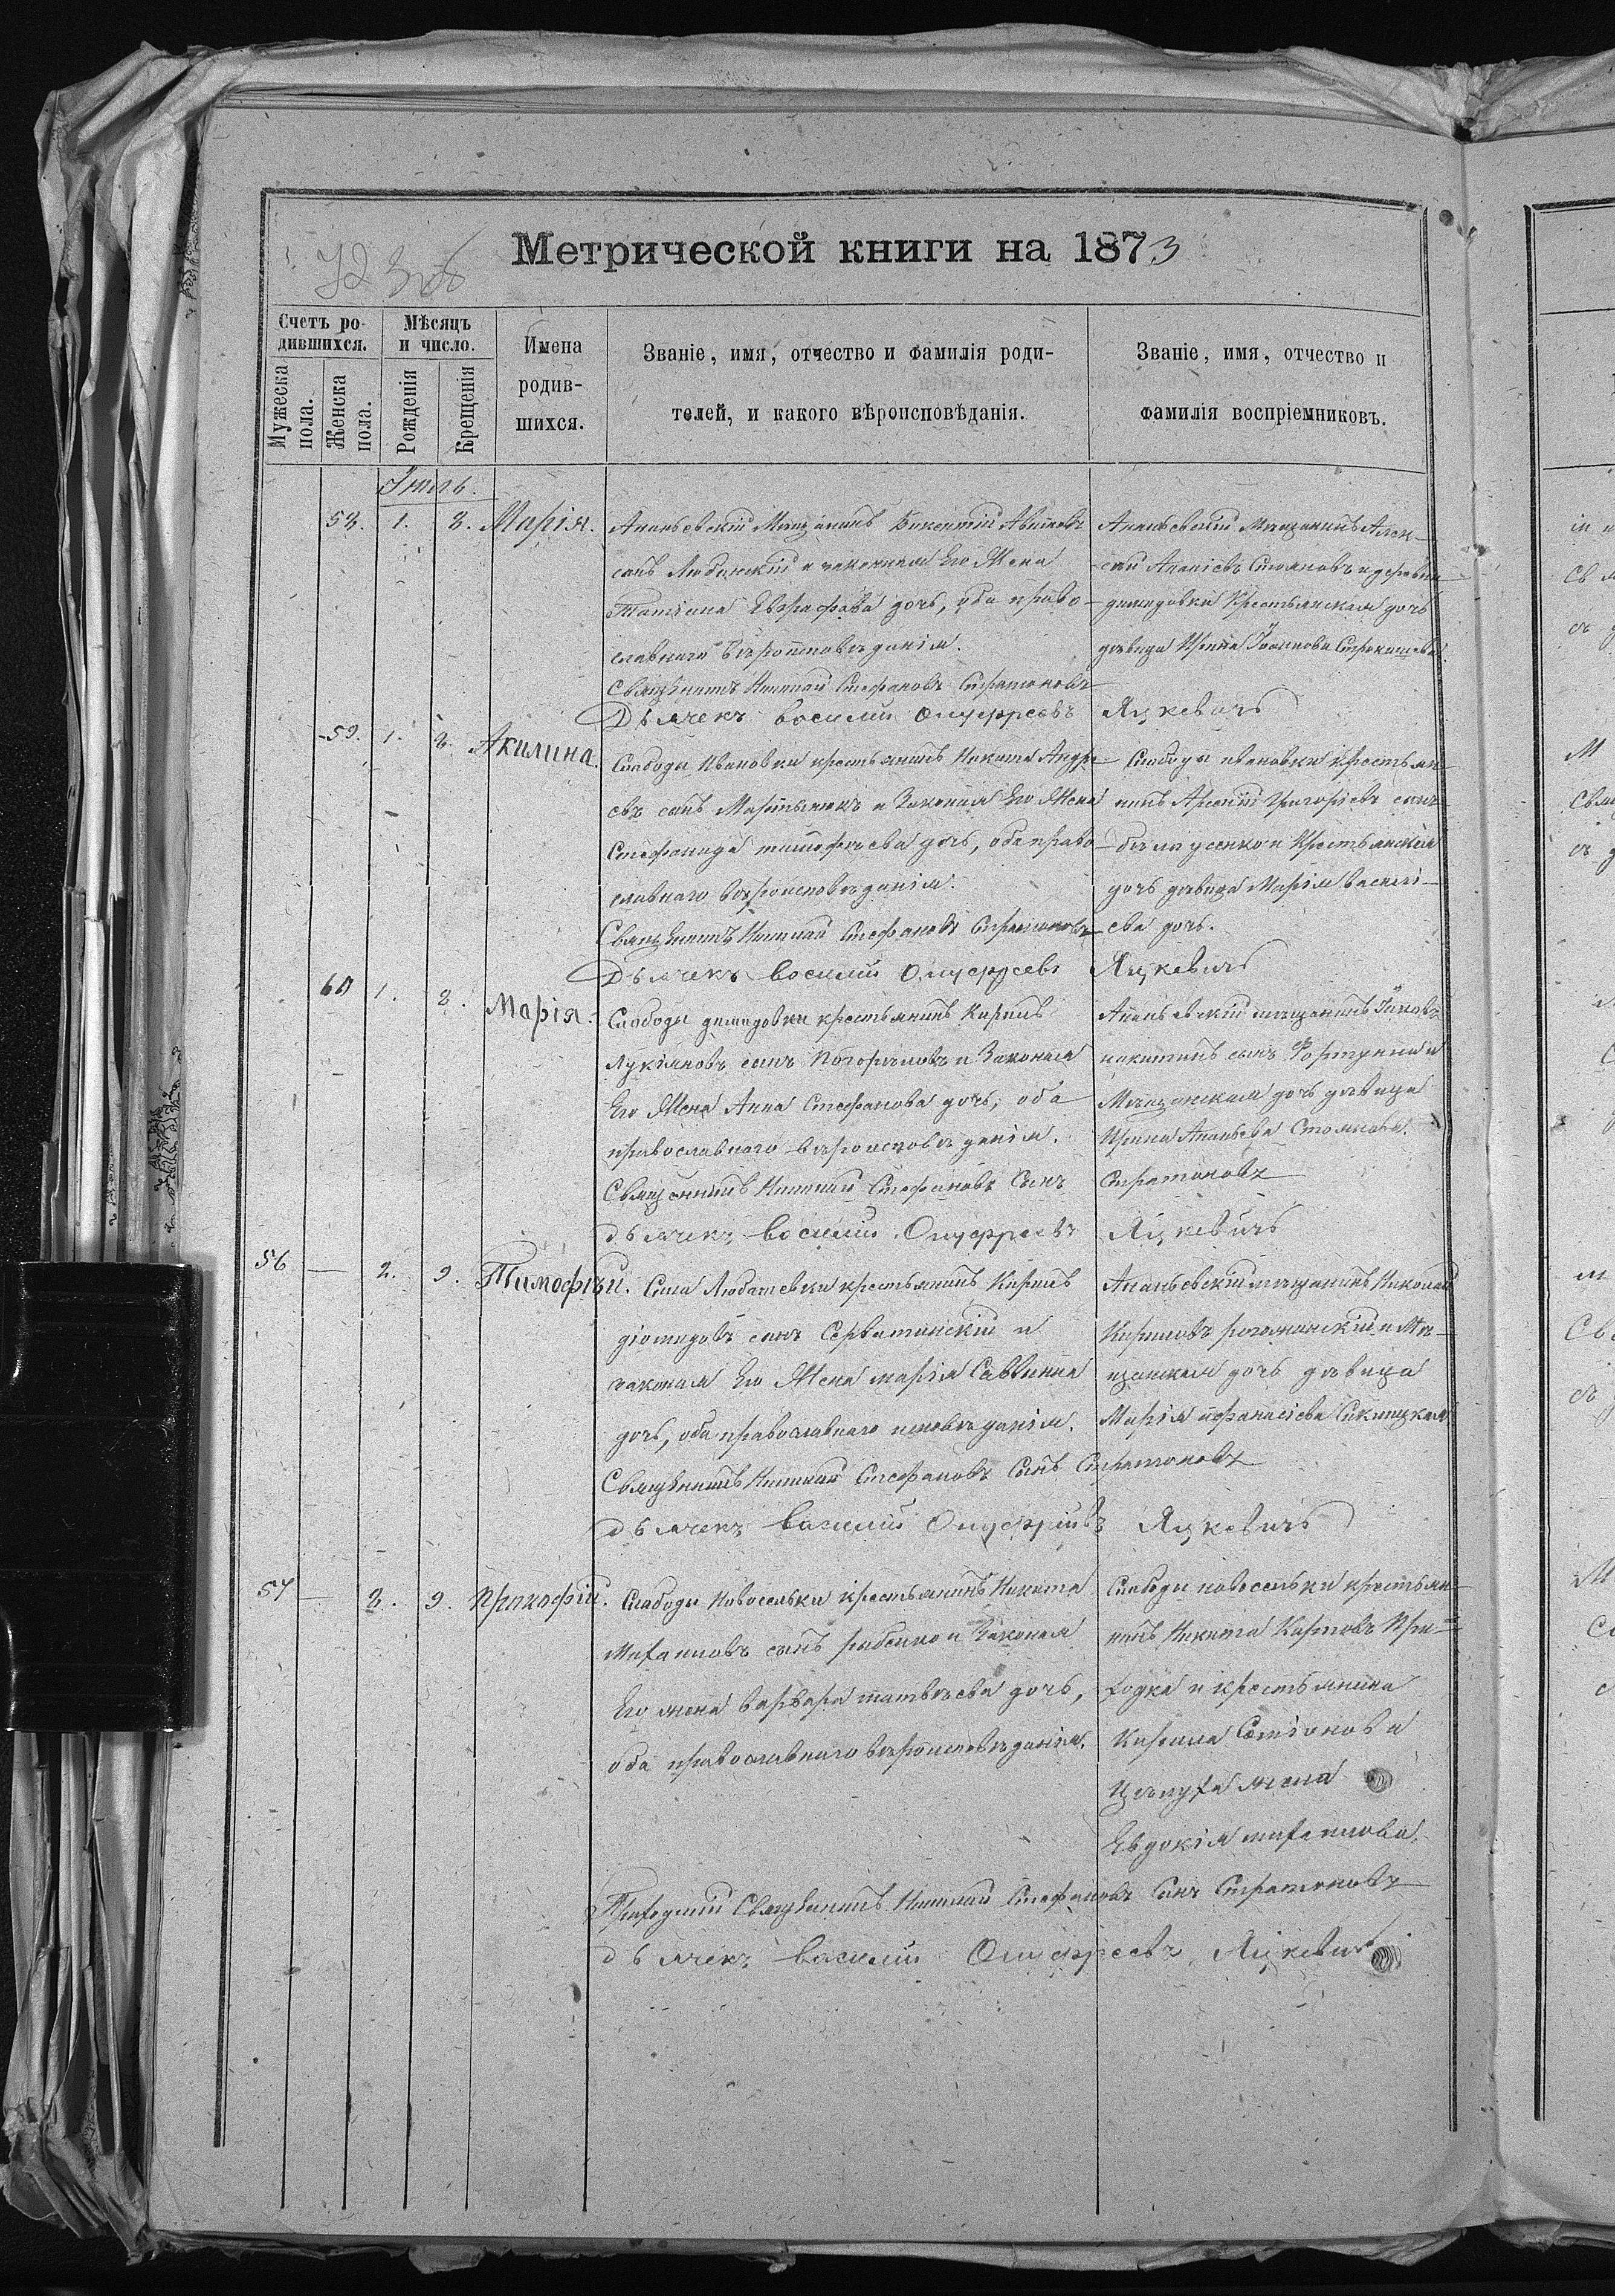 Метрической книги на 1873
Счетъ родившихся.
Мѣсяцъ и число.
Имена родившихся.
Званіе, имя, отчество и фамилія родителей, и какого вѣроисповѣданія.
Званіе, имя, отчество и фамилія воспріемниковъ.
Мужеска пола.
Женска пола.
Рожденія
Крещенія
58. 1. 3. Марія.
Ананьевскій Мѣщанинъ Викентій
сынъ и законная Его Жена
Татіана Евграфова дочь, оба право-
славнаго вѣроисповѣданія.
Священникъ Николай Стефановъ Стратоновъ
Дьячекъ Василий Онуфреевъ Яцкевичъ
Ананьевскій мѣщанинъ Алек-
сѣй Ананіевъ Стояновъ и деревни
демидовки Крестьянская дочь
дѣвица Ирина Іоаннова
59. 1. 3. Акилина.
Слободы Ивановки крестьянинъ Никита Андре
евъ сынъ Мартынюкъ и Законная Его Жена
Стефанида тимофѣева дочь, оба право
славнаго вѣроисповѣданія.
Священникъ Николай Стефановъ Стратоновъ
Дьячекъ Василий Онуфреевъ Яцкевичъ
Слободы ивановки Крестьян
инъ Арсеній Григоріевъ сынъ
и Крестьянская
дочь дѣвица Марія Василі-
ева дочь.
60 1. 3. Марія.
Слободы демидовки крестьянинъ Кирилъ
Лукіяновъ сынъ Погорѣловъ и Законная
Его Жена Анна Стефанова дочь, оба
православнаго вѣроисповѣданія.
Священникъ Николай Стефановъ Сынъ Стратоновъ
дьячекъ Василий Онуфреевъ Яцкевичъ
Ананьевскій мѣщанинъ Іаковъ
никитинъ сынъ Фортуна и
Мѣщанская дочь дѣвица
Ирина Ананьева Стоянова.
56 — 2. 9. Тимофѣй.
Села Любашевки крестьянинъ Кирилъ
діомидовъ сынъ Серватинскій и
законная Его Жена марія Саввина
дочь, оба православнаго исповѣданія.
Священникъ Николай Стефановъ Сынъ Стратоновъ
дьячекъ Василий Онуфріевъ Яцкевичъ
Ананьевскій мѣщанинъ Николай
Кириловъ и Мѣ-
щанская дочь дѣвица
Марія Афанасіева
57 — 3. 9. Прокофій.
Слободы Новоселки крестьянинъ Никита
Михаиловъ сынъ рябенко и Законная
Его жена Варвара матвѣева дочь,
оба православнаго вѣроисповѣданія.
Слободы новоселки крестьян
инъ Никита Карповъ При-
ходка и крестьянина
Кирила Семіонова
жена
Евдокія михаилова.
Приходскій Священникъ Николай Стефановъ Сынъ Стратоновъ
дьячекъ Василий Онуфреевъ Яцкевичъ